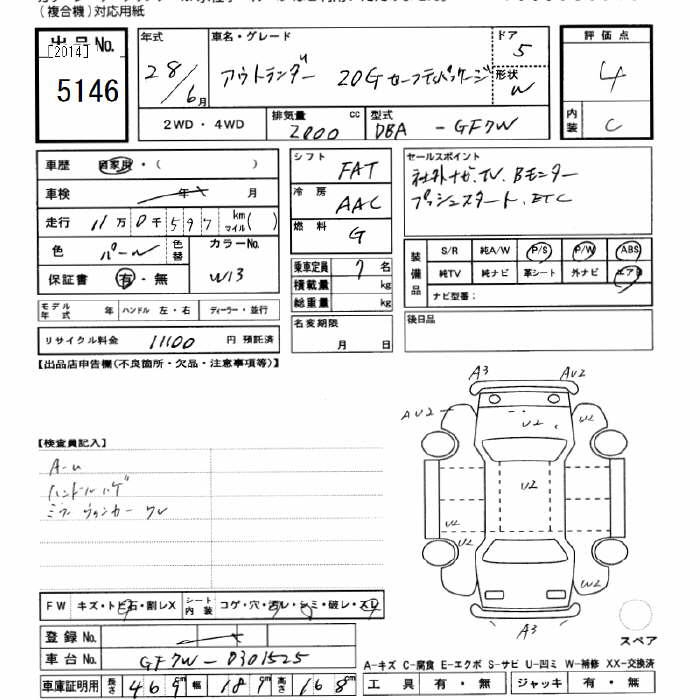 （複合機）対応用紙
出品No.
[2014]
5146
年式
28/6月
車名・グレード
アウトランダー 20Gセーフティパッケージ
ドア
5
形状
W
評価点
4
内装
C
2WD・4WD
排気量
2000 cc
型式
DBA - GF7W
車歴 自家用・（　　）
車検 年 月
走行 11万0千597 km マイル（　）
色 パール
色替
カラーNo.
W13
保証書 有・無
シフト FAT
冷房 AAC
燃料 G
セールスポイント
社外ナビ.TV. Bモニター
プッシュスタート. ETC
装備品
S/R 純A/W P/S P/W ABS
純TV 純ナビ 革シート 外ナビ エアB
ナビ型番：
乗車定員 7名
積載量 kg
総重量 kg
モデル年式 年 ハンドル 左・右 ディーラー・並行
リサイクル料金 11100 円 預託済
名変期限
月 日
後日品
【出品店申告欄（不良箇所・欠品・注意事項等）】
A3 AU2
AU2 U2 U2
【検査員記入】
A-u
ハンドルハゲ
ミラーウィンカーワレ
U2
U2 U2
W2
A3
FW キズ・トビ石・割レX
シート内装 コゲ・穴・汚レ・シミ・破レ・スレ
登録No.
車台No. GF7W-0301525
車庫証明用 長さ 469 cm 幅 181 cm 高さ 168 cm
スペア
A-キズ C-腐食 E-エクボ S-サビ U-凹ミ W-補修 XX-交換済
工具 有・無 ジャッキ 有・無